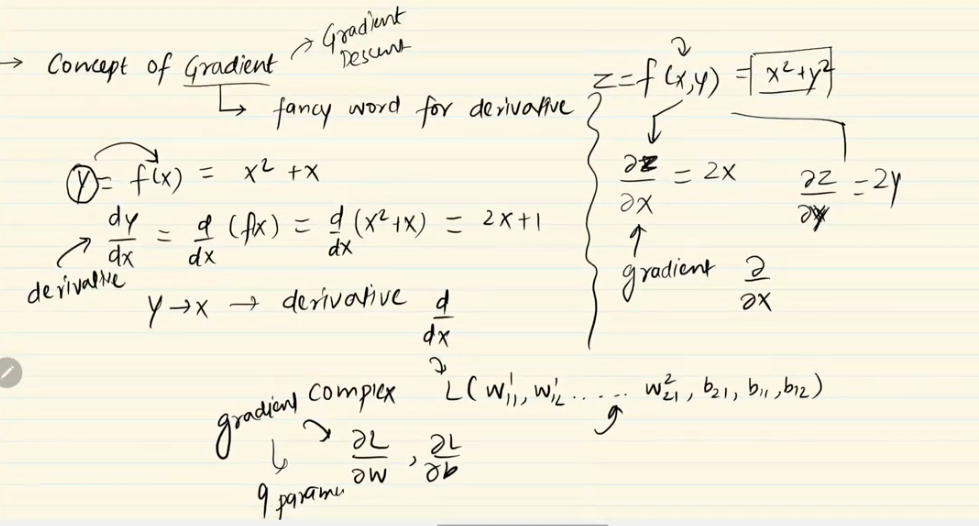 → Concept of Gradient → Gradient Descent
↳ fancy word for derivative
y = f(x) = x² + x
dy/dx = d/dx (fx) = d/dx (x²+x) = 2x+1
derivative
y → x → derivative d/dx
z = f(x,y) = x²+y²
∂z/∂x = 2x ∂z/∂y = 2y
gradient ∂/∂x
gradient complex L(w¹₁₁, w¹₁₂ ..... w²₂₁, b₂₁, b₁₁, b₁₂)
∂L/∂w , ∂L/∂b
9 param